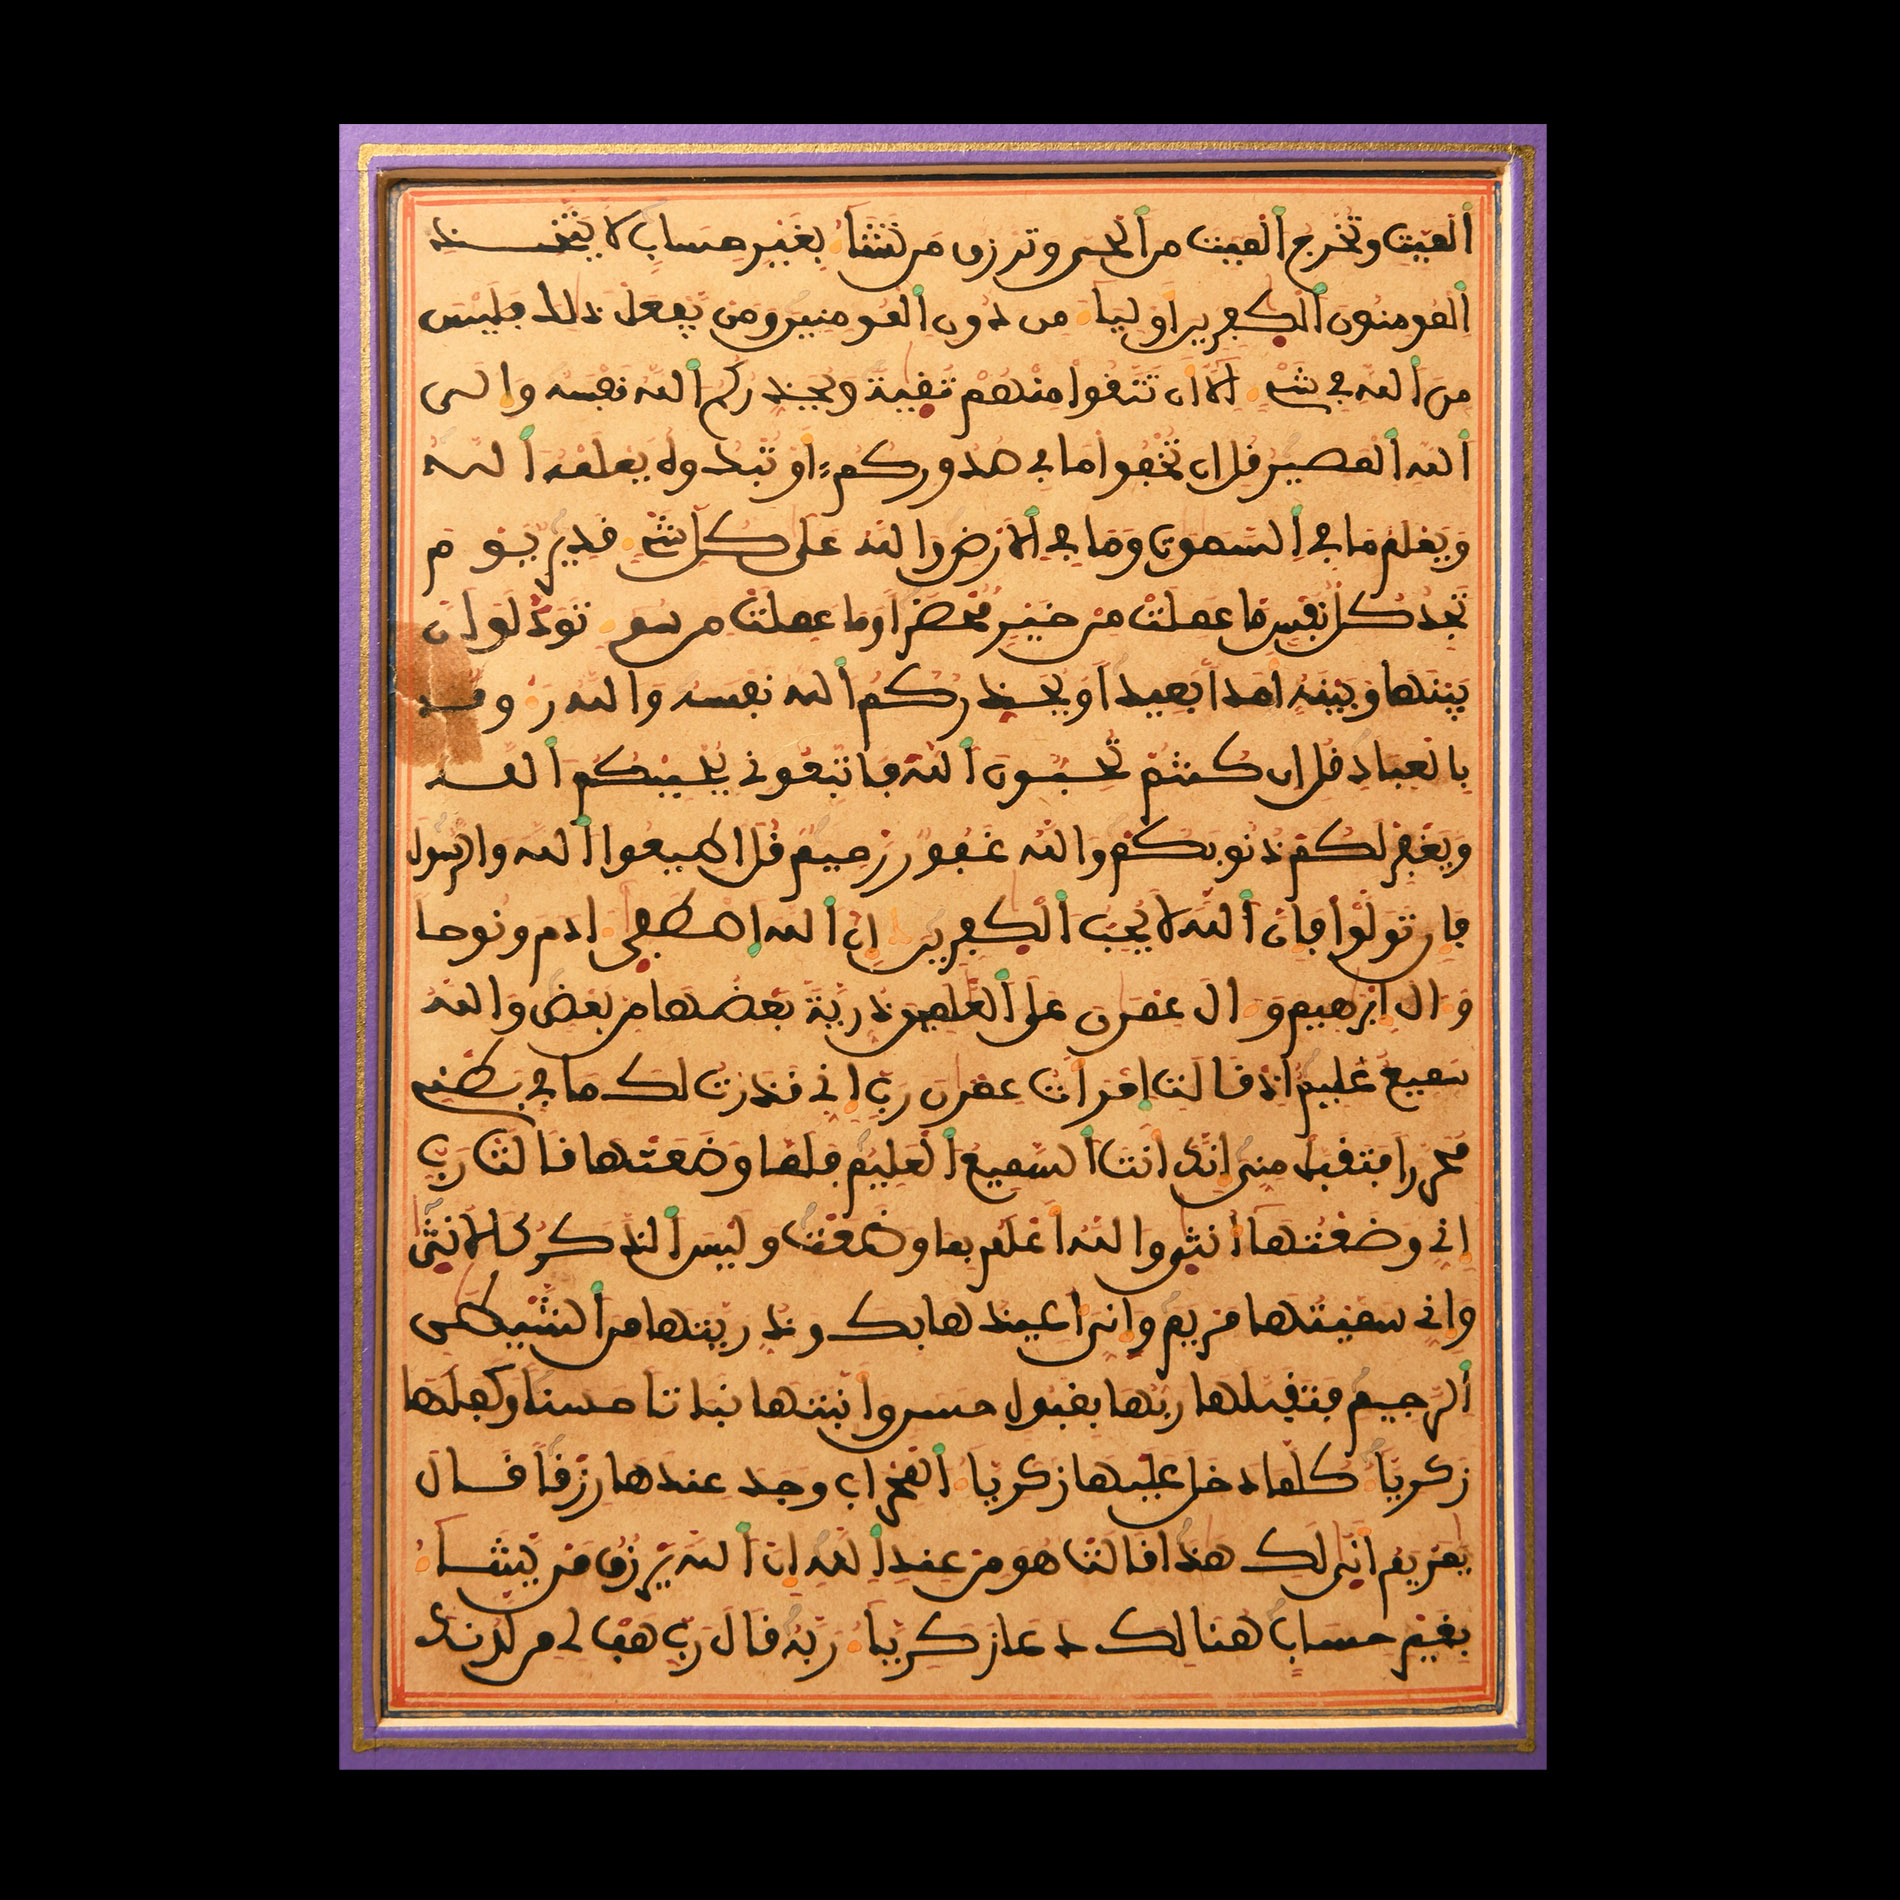 الميت وتخرج الميت من الحي وترزق من تشا بغير حساب لا يتخذ
المومنون الكفرين اوليا من دون المومنين ومن يفعل ذلك فليس
من الله في شي الا ان تتقوا منهم تقية ويحذركم الله نفسه والى
الله المصير قل ان تخفوا ما في صدوركم او تبدوه يعلمه الله
ويعلم ما في السموت وما في الارض والله على كل شي قدير يوم
تجد كل نفس ما عملت من خير محضرا وما عملت من سو تود لو ان
بينها وبينه امدا بعيدا ويحذركم الله نفسه والله روف
بالعباد قل ان كنتم تحبون الله فاتبعوني يحببكم الله
ويغفر لكم ذنوبكم والله غفور رحيم قل اطيعوا الله والرسول
فان تولوا فان الله لا يحب الكفرين ان الله اصطفى ادم ونوحا
وال ابرهيم وال عمرن على العلمين ذرية بعضها من بعض والله
سميع عليم اذ قالت امرات عمرن رب اني نذرت لك ما في بطني
محررا فتقبل مني انك انت السميع العليم فلما وضعتها قالت رب
اني وضعتها انثى والله اعلم بما وضعت وليس الذكر كالانثى
واني سميتها مريم واني اعيذها بك وذريتها من الشيطن
الرجيم فتقبلها ربها بقبول حسن وانبتها نباتا حسنا وكفلها
زكريا كلما دخل عليها زكريا المحراب وجد عندها رزقا قال
يمريم انى لك هذا قالت هو من عند الله ان الله يرزق من يشا
بغير حساب هنالك دعا زكريا ربه قال رب هب لي من لدنك